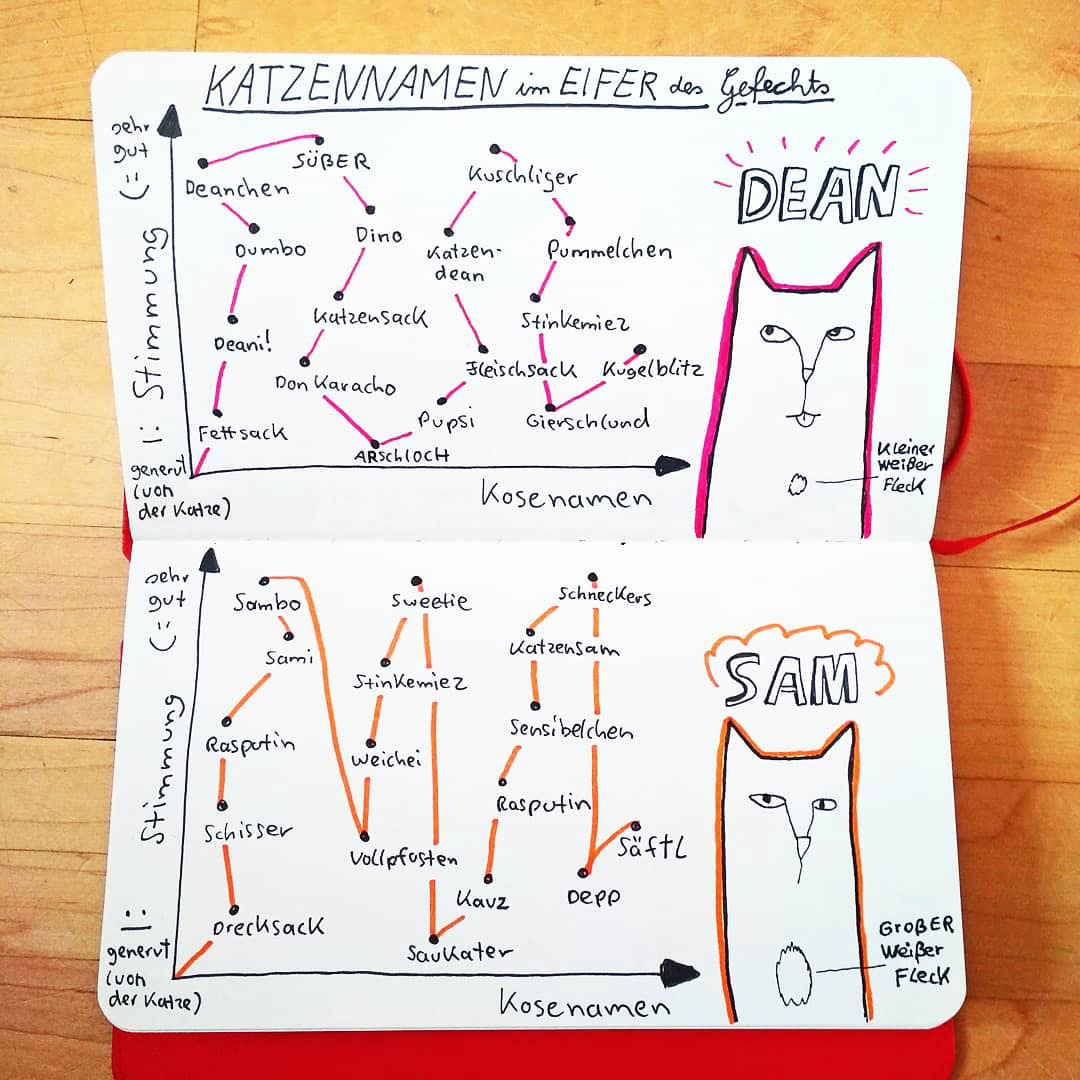 KATZENNAMEN im EIFER des Gefechts
sehr
gut
(=
Stimmung
|:
genervt
(von
der Katze)
Deanchen
SÜßER
Dumbo
Dino
Deani!
Katzensack
Don Karacho
Fettsack
ARSCHLOCH
Kuschliger
Katzen-
dean
Pummelchen
Stinkemiez
Fleischsack
Kugelblitz
Pupsi
Gierschlund
Kosenamen
DEAN
Kleiner
weißer
Fleck
sehr
gut
(=
Stimmung
|:
genervt
(von
der Katze)
Sambo
Sami
Rasputin
Schisser
Drecksack
Sweetie
Stinkemiez
Weichei
Vollpfosten
Saukater
Schneckers
Katzensam
Sensibelchen
Rasputin
Kauz
Säftl
Depp
Kosenamen
SAM
GROßER
Weißer
Fleck